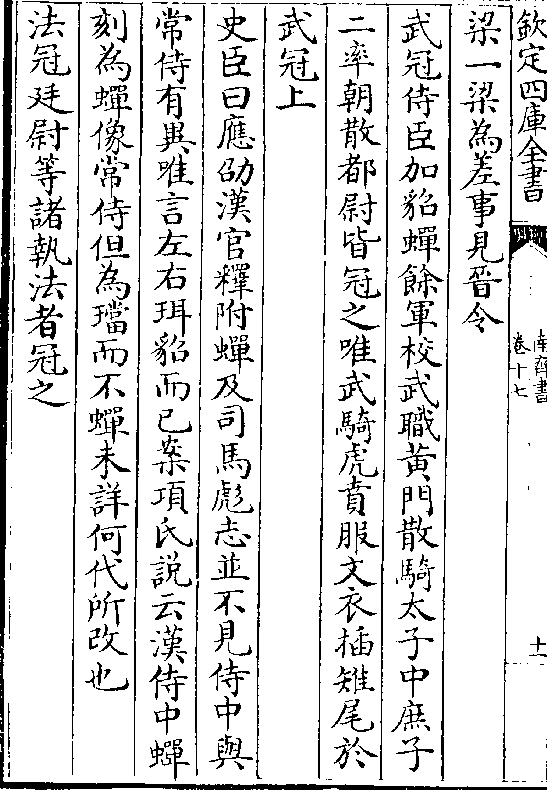 欽定四庫全書
南齊書
卷十七
十一
梁一梁為差事見晉令
武冠侍臣加貂蟬餘軍校武職黃門散騎太子中庶子
二率朝散都尉皆冠之唯武騎虎賁服文衣插雉尾於
武冠上
史臣曰應劭漢官釋附蟬及司馬彪志並不見侍中與
常侍有異唯言左右珥貂而已案項氏說云漢侍中蟬
刻為蟬像常侍但為璫而不蟬未詳何代所改也
法冠廷尉等諸執法者冠之